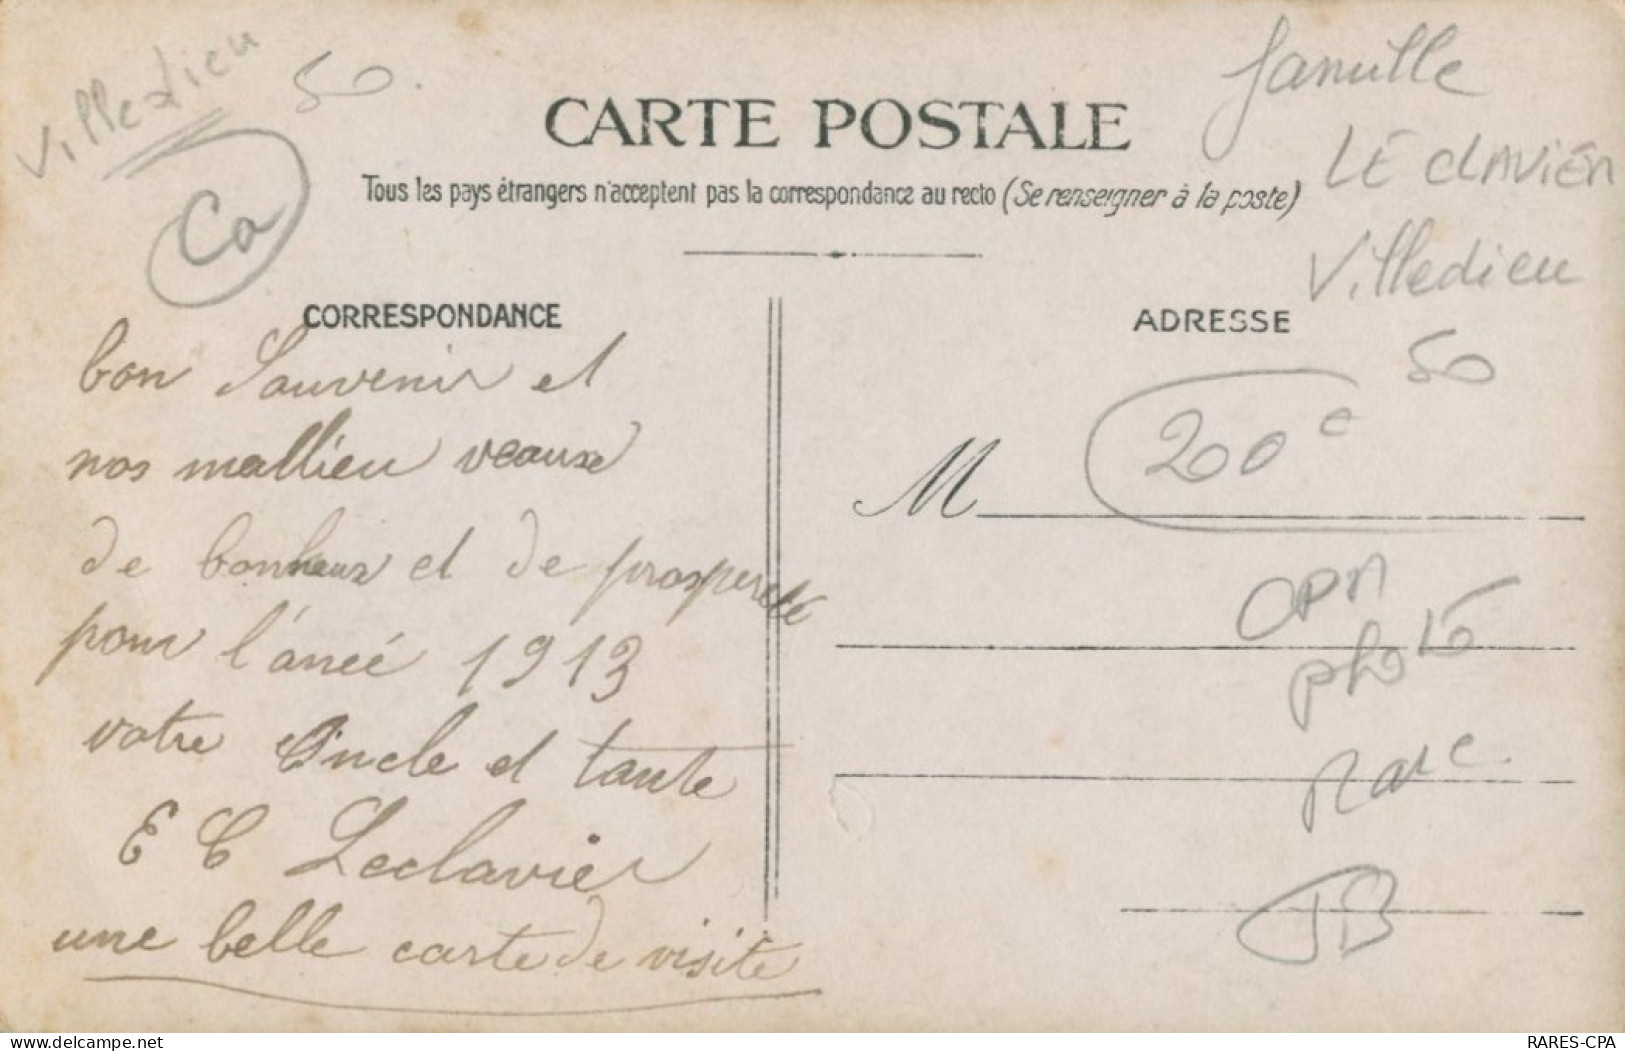 Villedieu 50
Ca
CARTE POSTALE
Tous les pays étrangers n'acceptent pas la correspondance au recto (Se renseigner à la poste)
famille
LE CLAVIER
Villedieu
50
CORRESPONDANCE
bon Souvenir et
nos mellieu veaux
de bonheur et de prosperete
pour l'aneé 1913
votre Oncle et tante
E C Leclavier
une belle carte de visite
ADRESSE
200 e
M
CPA
photo
Rare
JB
www.delcampe.net
RARES-CPA